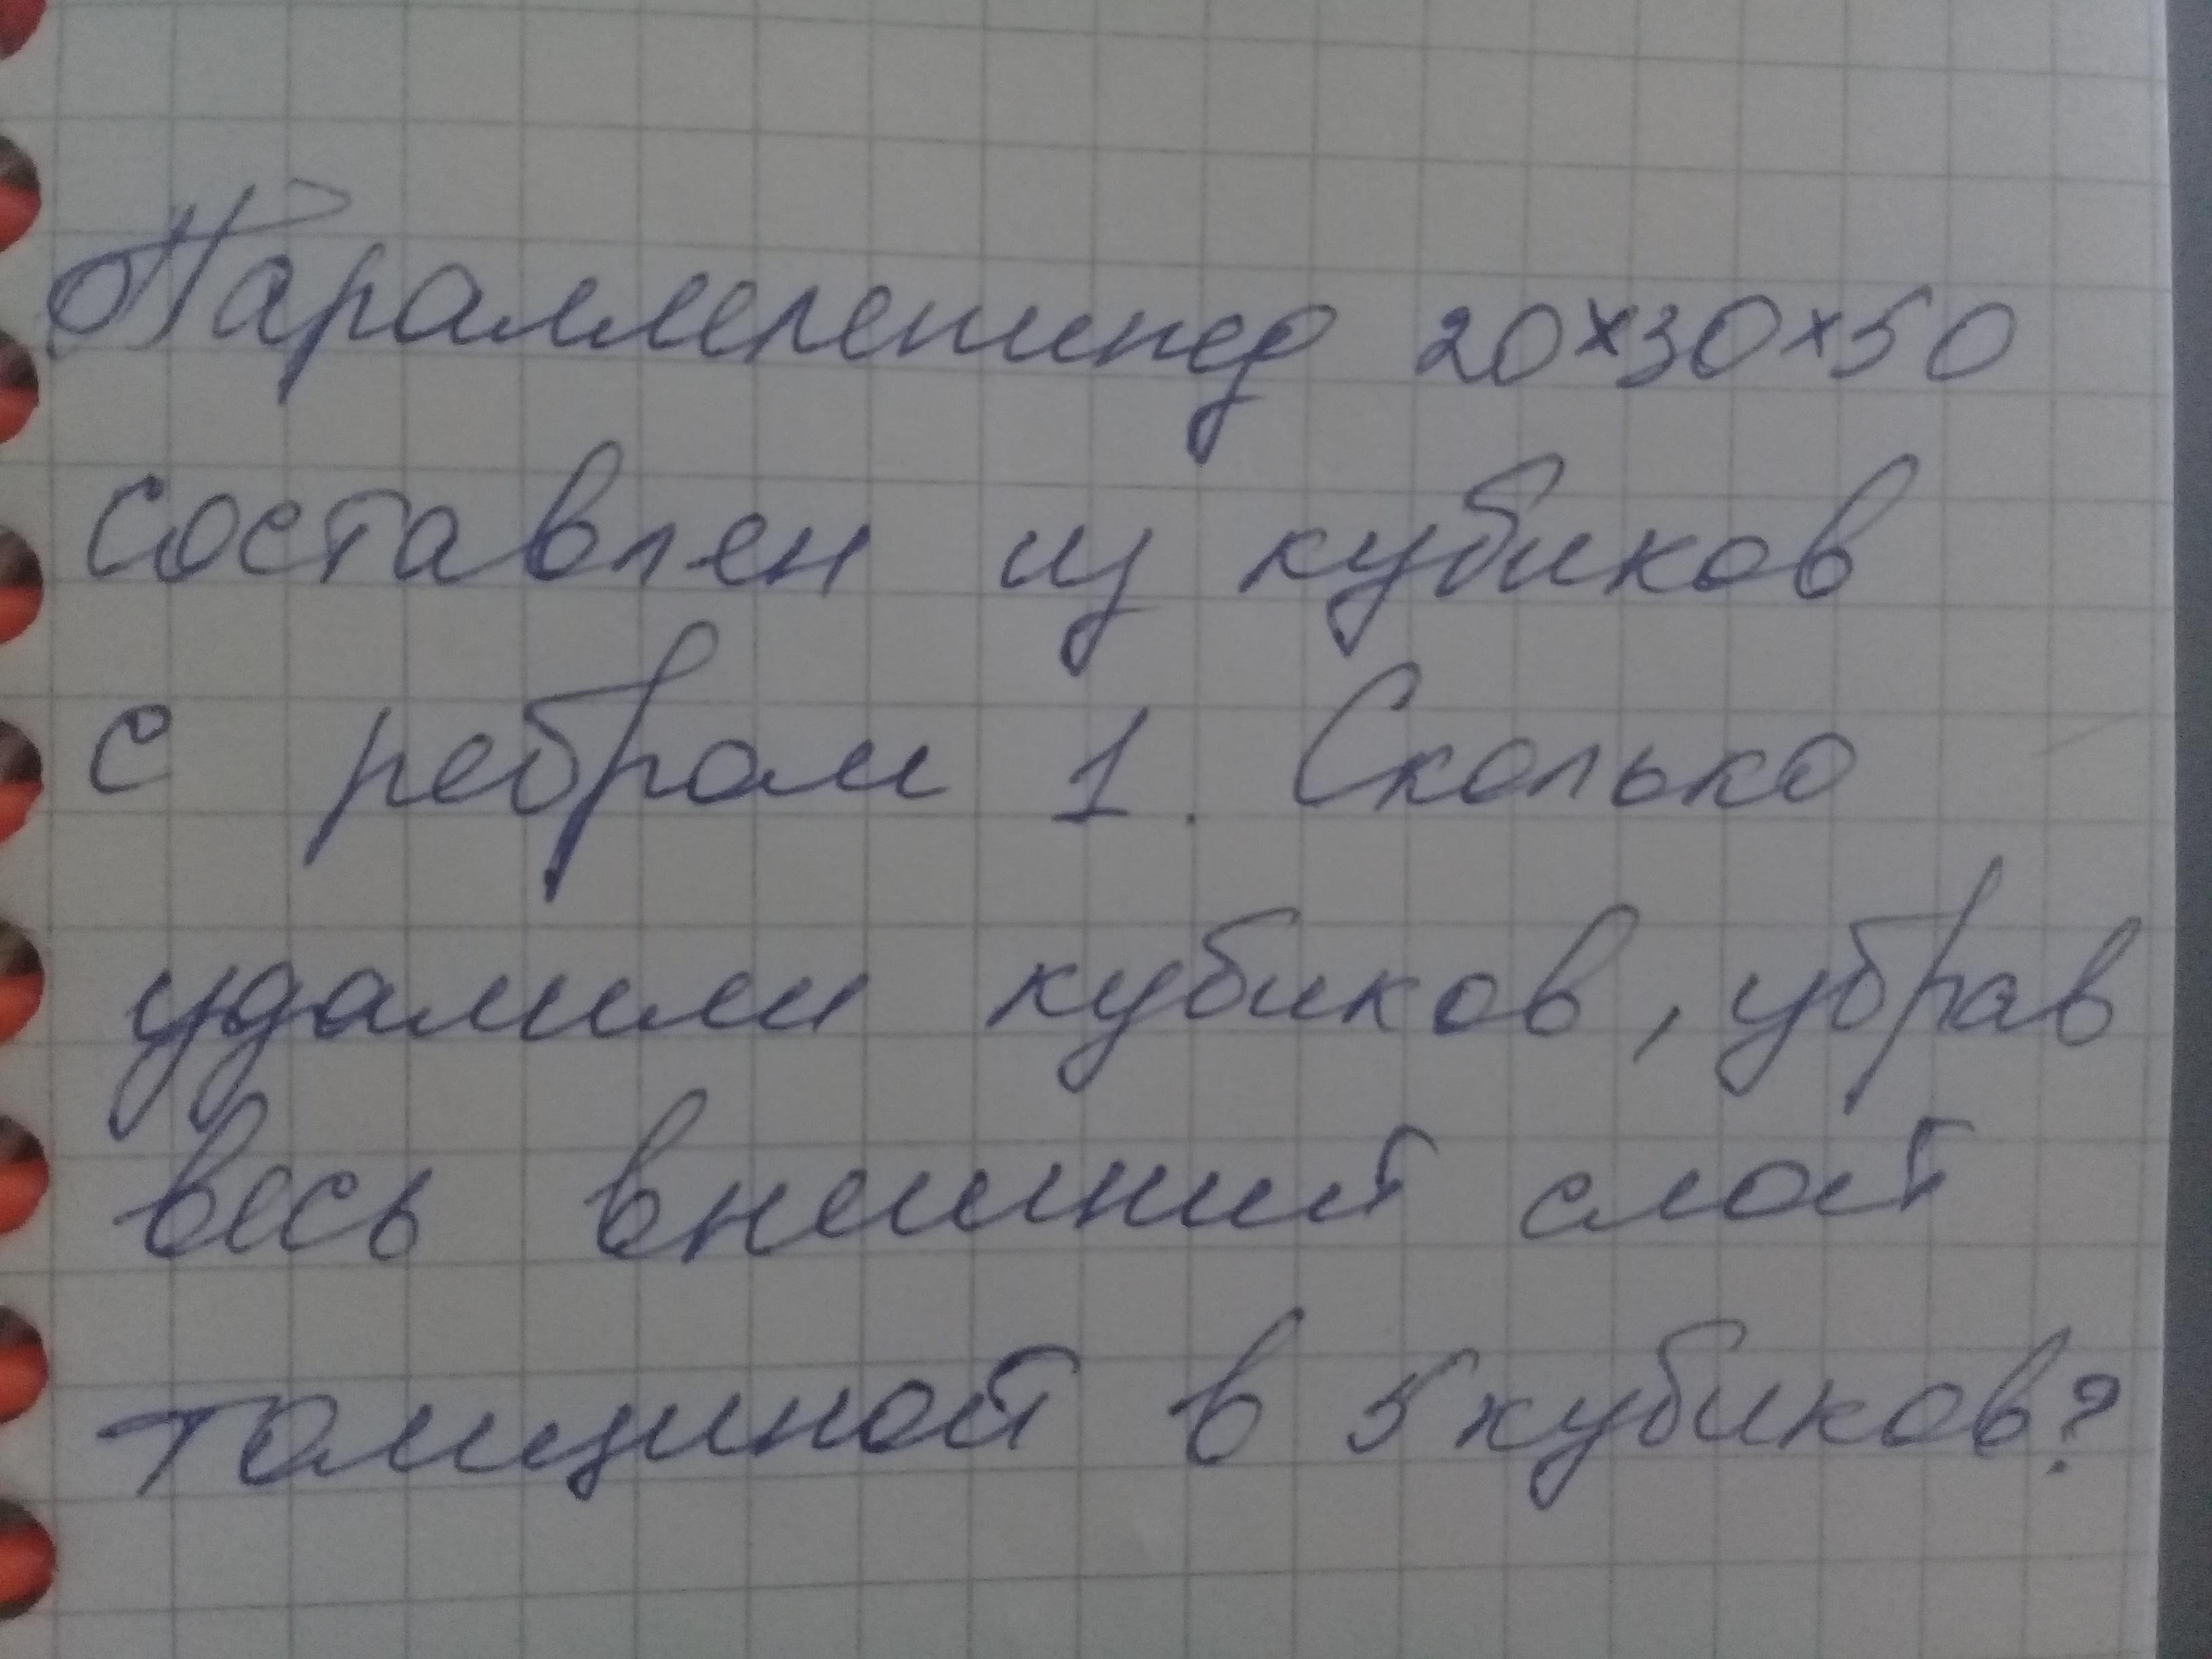 Параллелепипед 20×30×50
составлен из кубиков
с ребром 1. Сколько
удалили кубиков, убрав
весь внешний слой
толщиной в 5 кубиков?